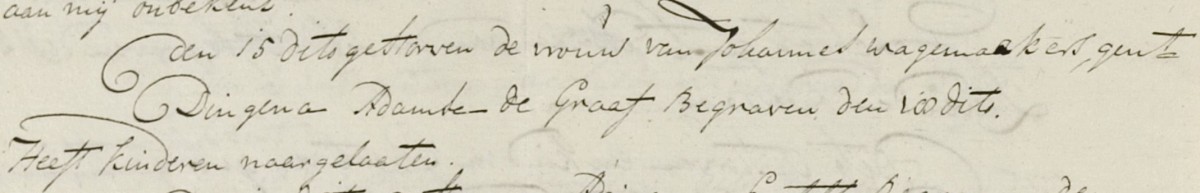 aan mij onbekent.
den 15 dito gestorven de vrouw van Johannes wagemaakers, gent
Dingena Adamse de Graaf Begraven den dito.
Heeft kinderen naargelaaten.